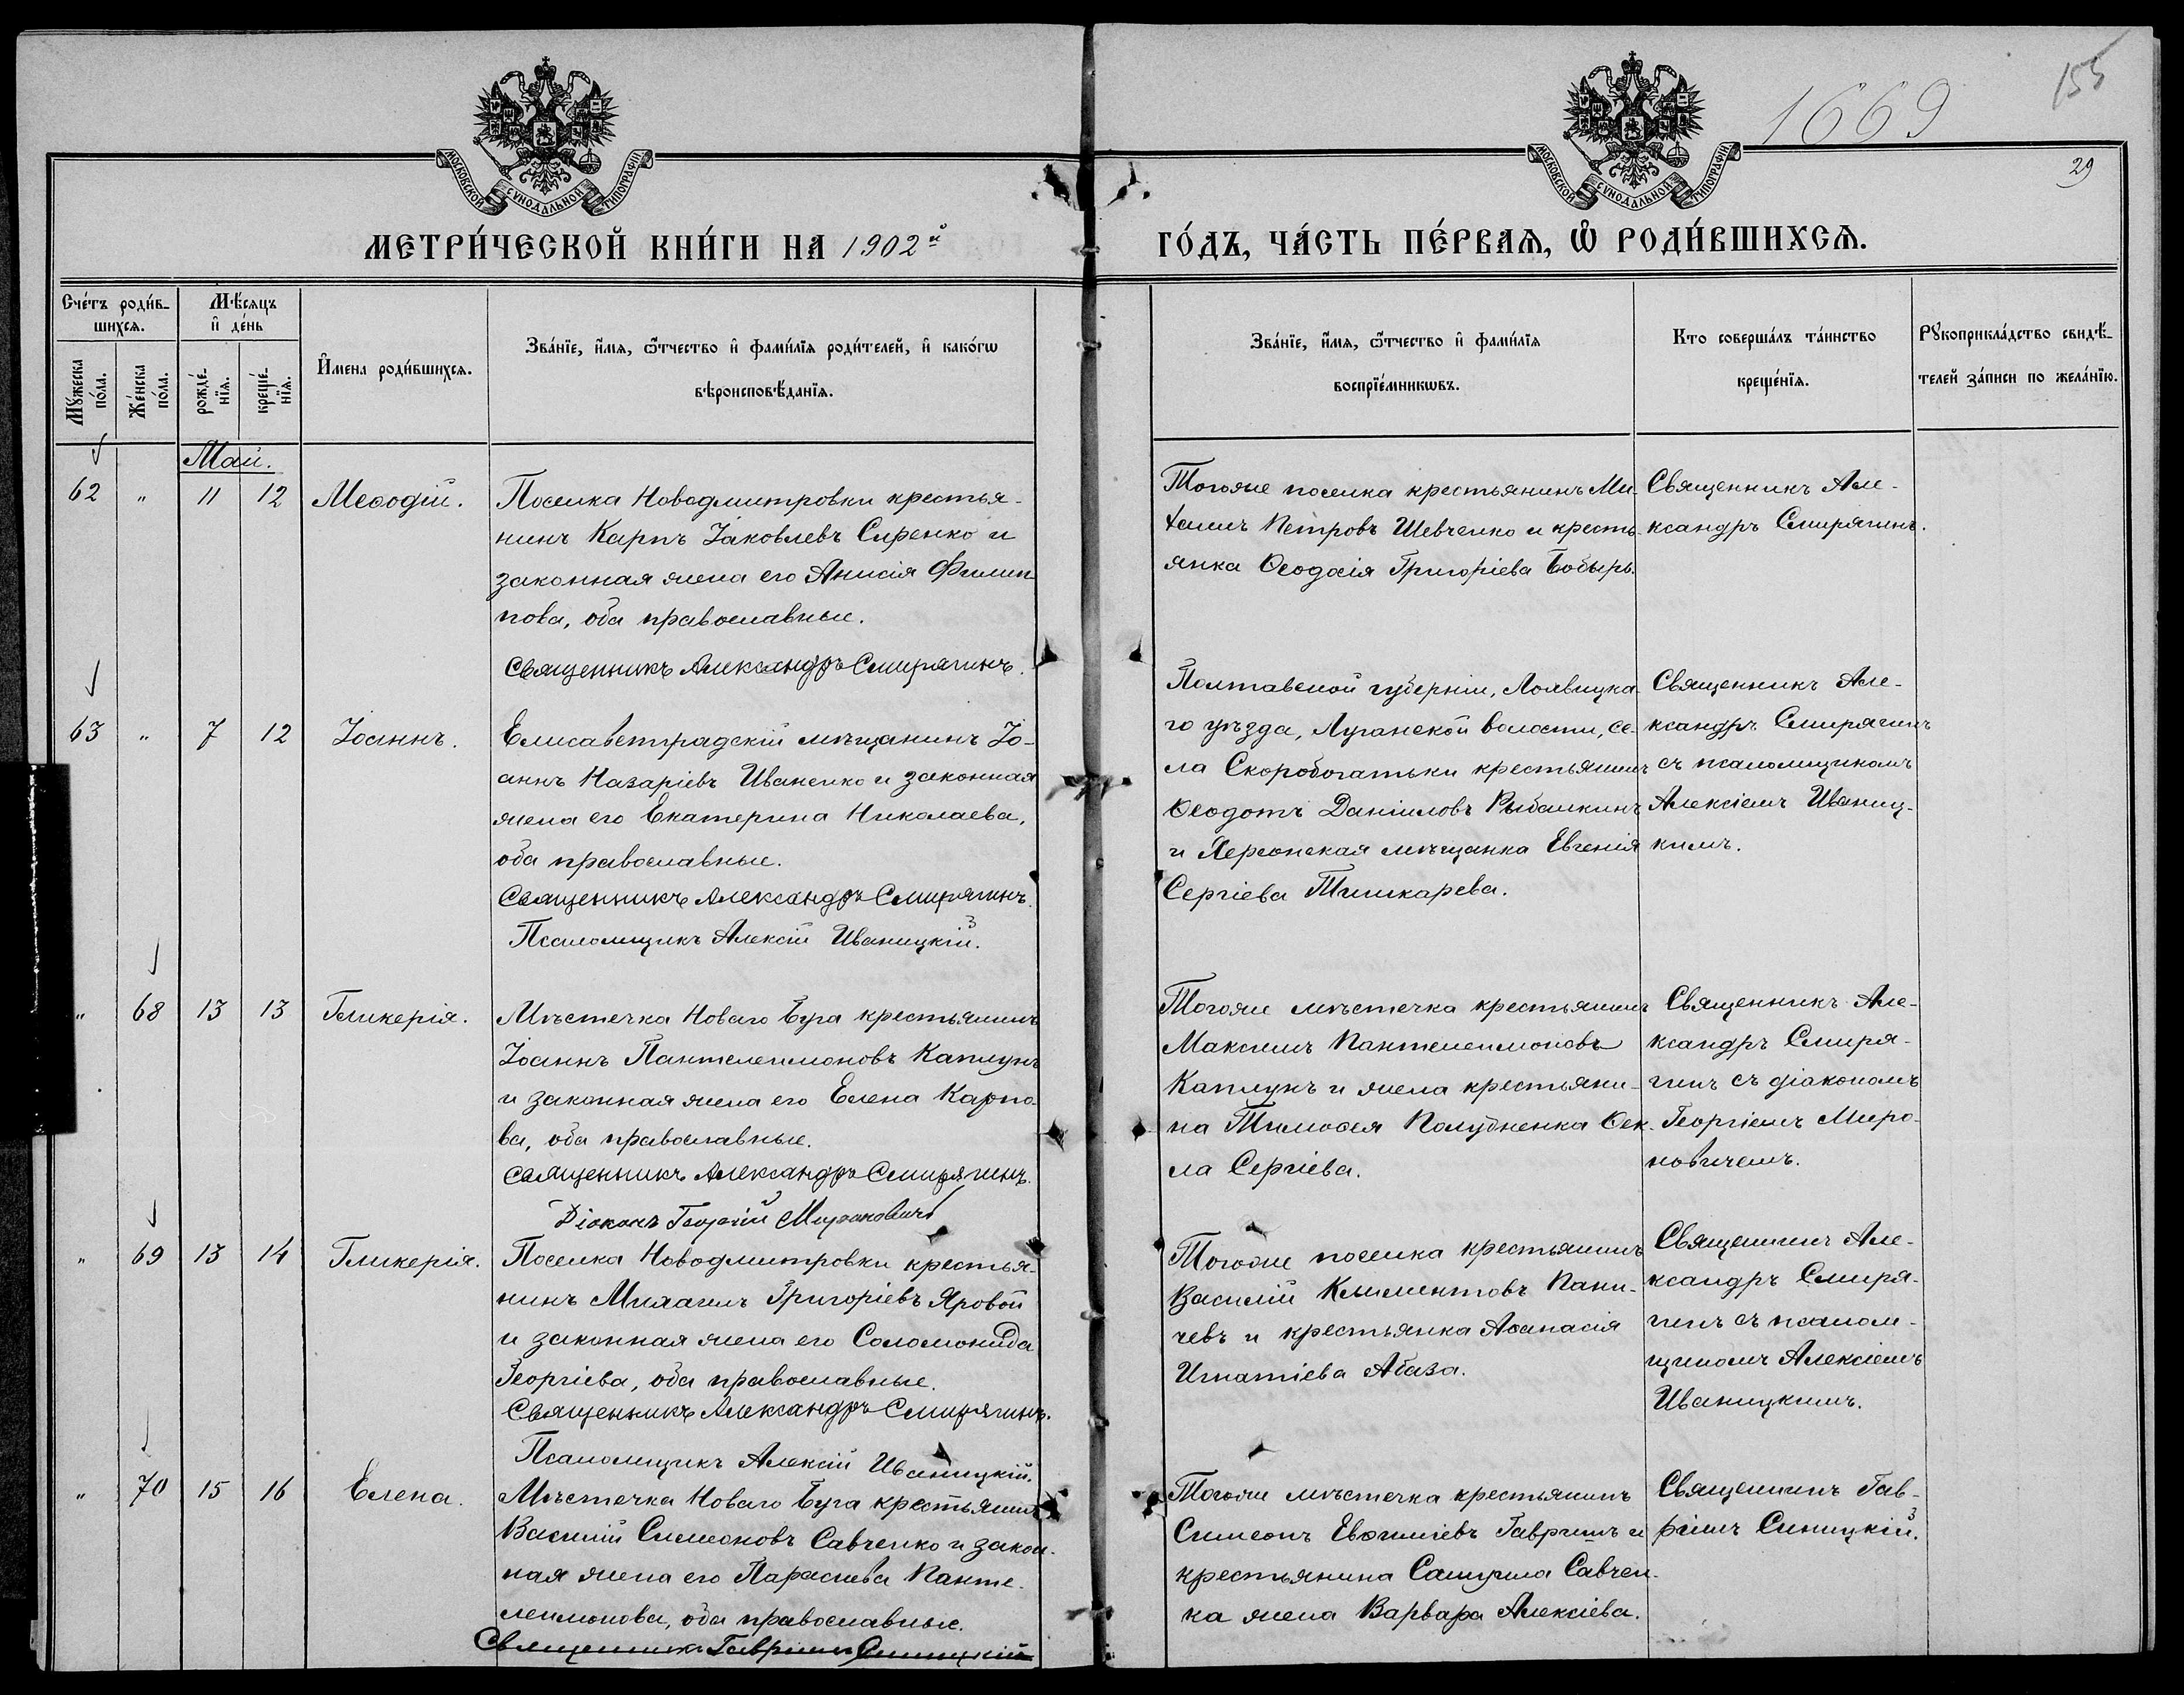 1669
155
29
МОСКОВСКОЙ СУНОДАЛЬНОЙ ТИПОГРАФІИ
МОСКОВСКОЙ СУНОДАЛЬНОЙ ТИПОГРАФІИ
МЕТРИ́ЧЕСКОЙ КНИ́ГИ НА 1902й
ГО́ДЪ, ЧА́СТЬ ПЕ́РВАѦ, Ѡ РОДИ́ВШИХСѦ.
Сче́тъ роди́в-
шихсѧ.
Мꙋжеска по́ла.
Же́нска по́ла.
Мѣ́сѧцъ
и де́нь
рожде́-
нїѧ.
креще́-
нїѧ.
И́мена роди́вшихсѧ.
Зва́нїе, и́мѧ, ѻ́тчество и фами́лїѧ роди́телей, и како́гѡ
вѣроисповѣ́данїѧ.
Зва́нїе, и́мѧ, ѻ́тчество и фами́лїѧ
воспрїе́мникѡвъ.
Кто соверша́лъ та́инство
креще́нїѧ.
Рꙋкоприкла́дство свидѣ́-
телей за́писи по жела́нїю.
Май.
62 " 11 12 Меѳодій.
Поселка Новодмитровки крестья-
нинъ Карпъ Іаковлевъ Сиренко и
законная жена его Анисія Филип-
пова, оба православные.
Священникъ Александръ Смирягинъ.
Тогоже поселка крестьянинъ Ми-
хаилъ Петровъ Шевченко и кресть-
янка Ѳеодосія Григоріева Бобырь.
Священникъ Але-
ксандръ Смирягинъ.
63 " 7 12 Іоаннъ.
Елисаветградскій мѣщанинъ Іо-
аннъ Назаріевъ Иваненко и законная
жена его Екатерина Николаева,
оба православные.
Священникъ Александръ Смирягинъ.
Псаломщикъ Алексій Иваницкій.
Полтавской губерніи, Лохвицка-
го уѣзда, Луганской волости, се-
ла Скоробогатьки крестьянинъ
Ѳеодотъ Даніиловъ Рыбалкинъ
и Херсонская мѣщанка Евгенія
Сергіева Тишкарева.
Священникъ Але-
ксандръ Смирягинъ
съ псаломщикомъ
Алексіемъ Иваниц-
кимъ.
" 68 13 13 Гликерія.
Мѣстечка Новаго Буга крестьянинъ
Іоаннъ Пантелеимоновъ Каплунъ
и законная жена его Елена Карпо-
ва, оба православные.
Священникъ Александръ Смирягинъ.
Діаконъ Георгій Мироновичъ
Тогоже мѣстечка крестьянинъ
Максимъ Пантелеимоновъ
Каплунъ и жена крестьяни-
на Тимоѳея Полубненка Ѳек-
ла Сергіева.
Священникъ Але-
ксандръ Смиря-
гинъ съ діакономъ
Георгіемъ Миро-
новичемъ.
" 69 13 14 Гликерія.
Поселка Новодмитровки крестья-
нинъ Михаилъ Григоріевъ Яровой
и законная жена его Соломонида
Георгіева, оба православные.
Священникъ Александръ Смирягинъ.
Псаломщикъ Алексій Иваницкій.
Тогоже поселка крестьянинъ
Василій Климентовъ Пани-
чевъ и крестьянка Аѳанасія
Игнатіева Абаза.
Священникъ Але-
ксандръ Смиря-
гинъ съ псалом-
щикомъ Алексіемъ
Иваницкимъ.
" 70 15 16 Елена.
Мѣстечка Новаго Буга крестьянинъ
Василій Симеоновъ Савченко и закон-
ная жена его Параскева Панте-
леимонова, оба православные.
Священникъ Гавріилъ Синицкій
Тогоже мѣстечка крестьянинъ
Симеонъ Евѳиміевъ Гавришъ и
крестьянина Самуила Савчен-
ка жена Варвара Алексіева.
Священникъ Гав-
ріилъ Синицкій.